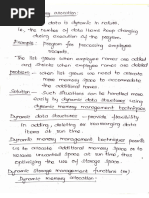 memory allocation :
data is dynamic in nature.
i.e., the number of data items keep changing
during execution of the program.
Example :- program for processing employee
The list grows when employee names are added
when employee names are deleted.
problem :- when list grows we need to allocate
more memory space to accommodate
the additional names.
Solution :- Such situations should be handle more
easily by dynamic data structures using
dynamic memory management techniques
Dynamic data structures - provide flexibility
in adding, deleting or rearranging data
items at run time
Dynamic memory management techniques permits
us to allocate additional memory space or to
release unwanted space at run time, thus
optimizing the use of storage space.
Dynamic Storage management functions (or)
Dynamic memory allocation :